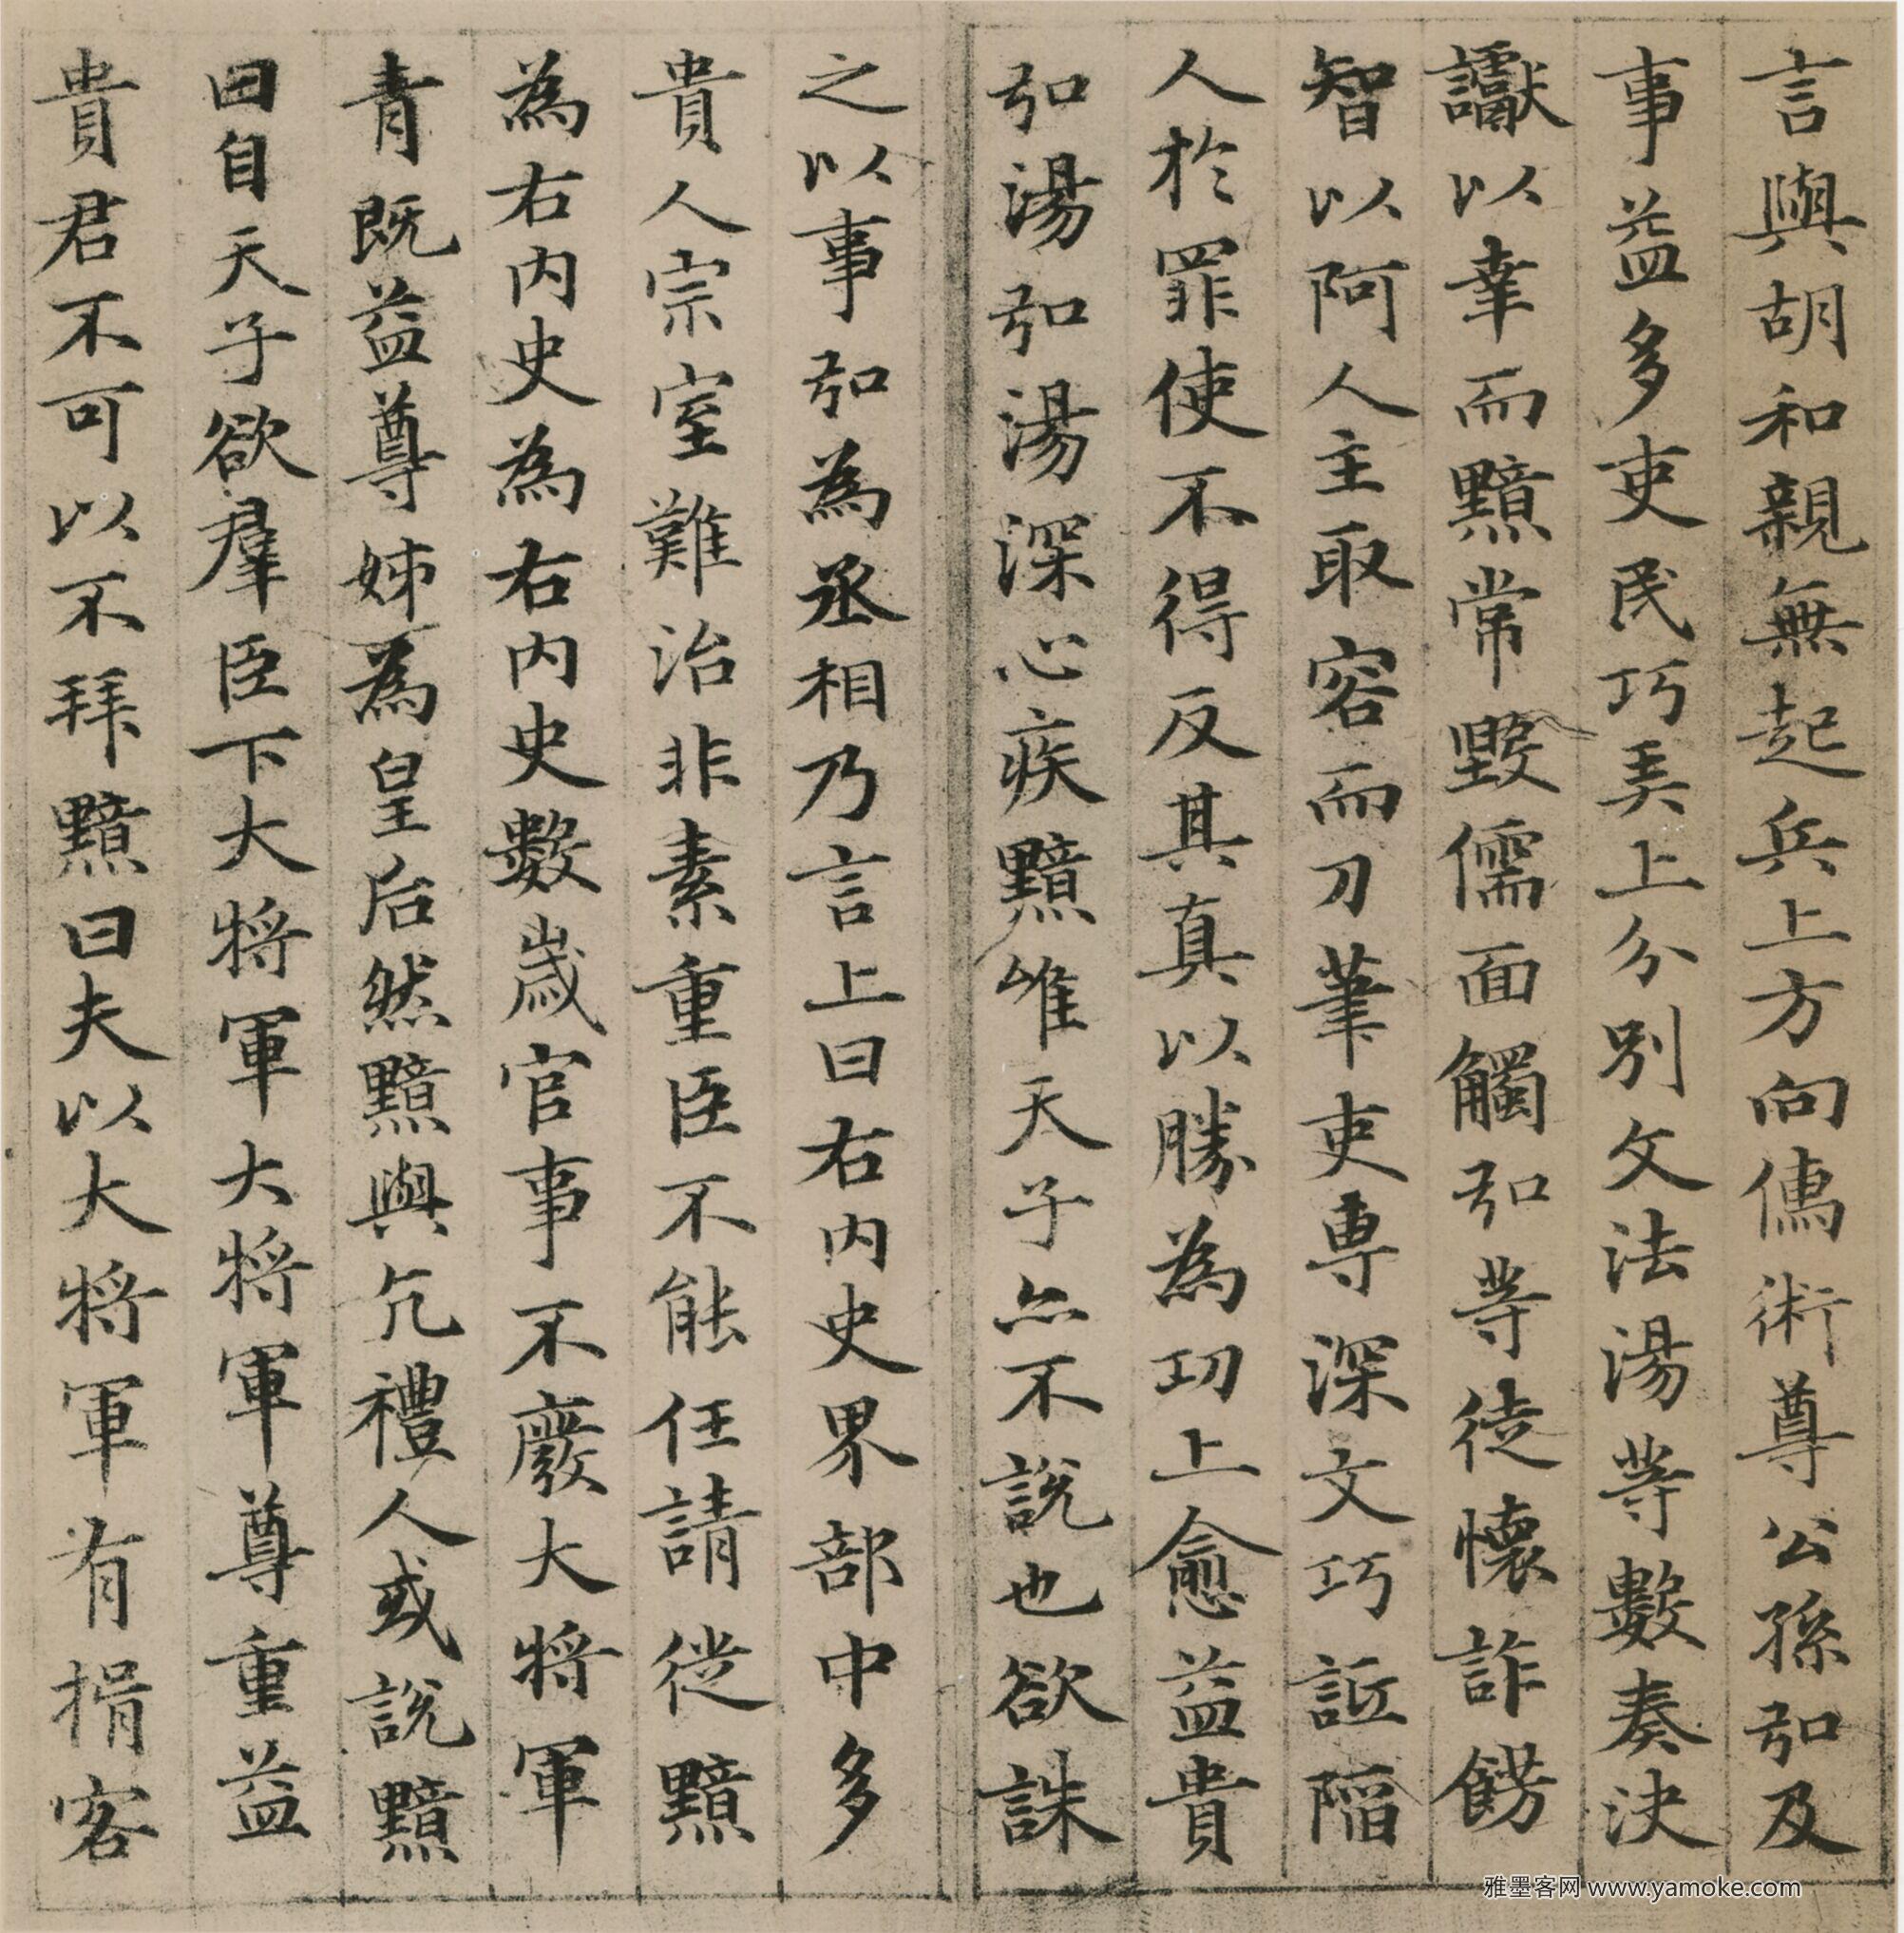 言與胡和親無起兵上方向儒術尊公孫弘及
事益多吏民巧弄上分別文法湯等數奏決
讞以幸而黯常毀儒面觸弘等徒懷詐飾
智以阿人主取容而刀筆吏專深文巧詆陷
人於罪使不得反其真以勝為功上愈益貴
弘湯弘湯深心疾黯唯天子亦不說也欲誅
之以事弘為丞相乃言上曰右內史界部中多
貴人宗室難治非素重臣不能任請徙黯
為右內史為右內史數歲官事不廢大將軍
青既益尊姊為皇后然黯與亢禮人或說黯
曰自天子欲羣臣下大將軍大將軍尊重益
貴君不可以不拜黯曰夫以大將軍有揖客
雅墨客网 www.yamoke.com